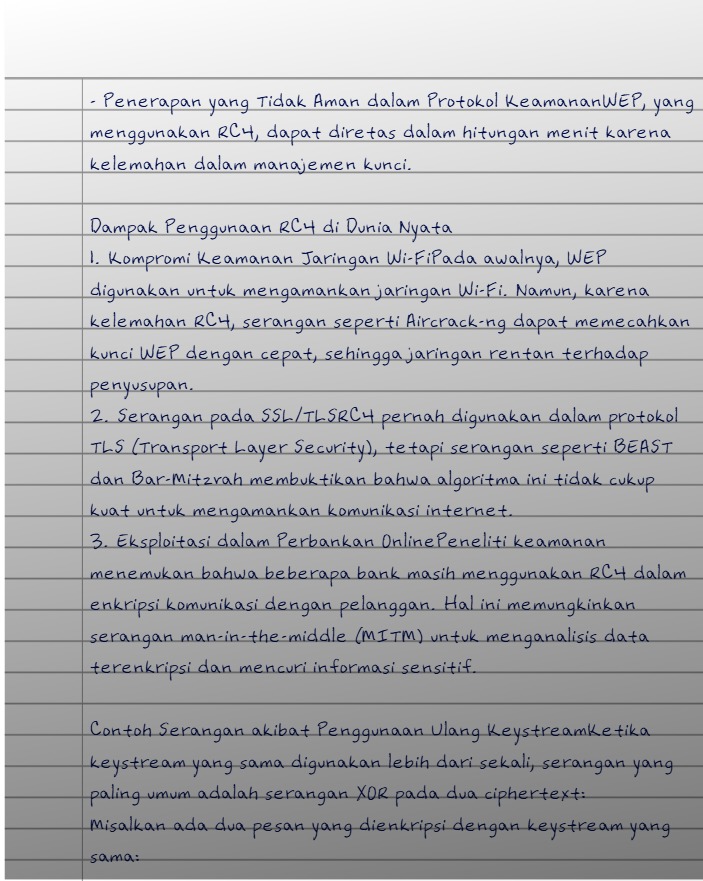 - Penerapan yang Tidak Aman dalam Protokol KeamananWEP, yang
menggunakan RC4, dapat diretas dalam hitungan menit karena
kelemahan dalam manajemen kunci.
Dampak Penggunaan RC4 di Dunia Nyata
1. Kompromi Keamanan Jaringan Wi-FiPada awalnya, WEP
digunakan untuk mengamankan jaringan Wi-Fi. Namun, karena
kelemahan RC4, serangan seperti Aircrack-ng dapat memecahkan
kunci WEP dengan cepat, sehingga jaringan rentan terhadap
penyusupan.
2. Serangan pada SSL/TLSRC4 pernah digunakan dalam protokol
TLS (Transport Layer Security), tetapi serangan seperti BEAST
dan Bar-Mitzvah membuktikan bahwa algoritma ini tidak cukup
kuat untuk mengamankan komunikasi internet.
3. Eksploitasi dalam Perbankan OnlinePeneliti keamanan
menemukan bahwa beberapa bank masih menggunakan RC4 dalam
enkripsi komunikasi dengan pelanggan. Hal ini memungkinkan
serangan man-in-the-middle (MITM) untuk menganalisis data
terenkripsi dan mencuri informasi sensitif.
Contoh Serangan akibat Penggunaan Ulang KeystreamKetika
keystream yang sama digunakan lebih dari sekali, serangan yang
paling umum adalah serangan XOR pada dua ciphertext:
Misalkan ada dua pesan yang dienkripsi dengan keystream yang
sama: